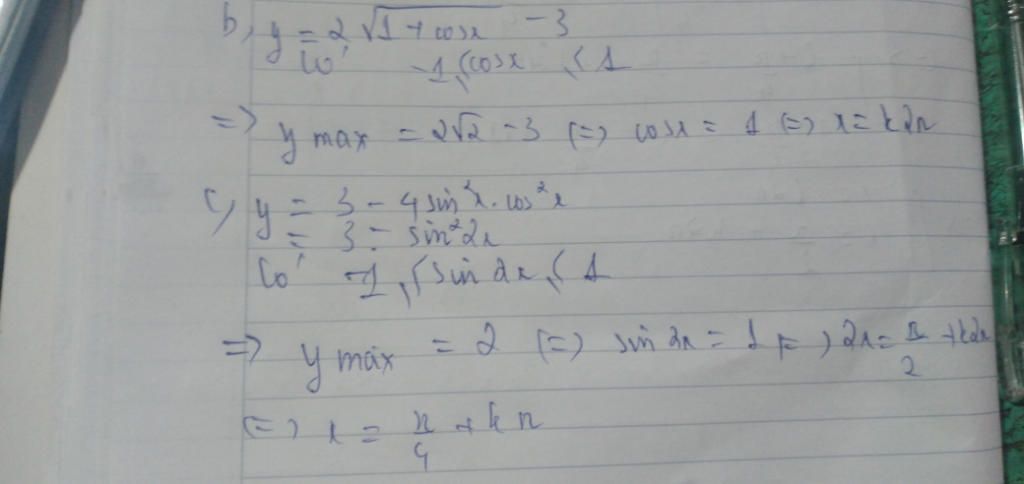 b, y = 2 √1 + cosx - 3
Có -1 ≤ cosx ≤ 1
=> y max = 2√2 - 3 (=) cosx = 1 (=) x = k2π
c, y = 3 - 4 sin²x. cos²x
= 3 - sin²2x
Có -1 ≤ sin 2x ≤ 1
=> y max = 2 (=) sin 2x = 1 (=) 2x = π/2 + k2π
(=) x = π/4 + kπ